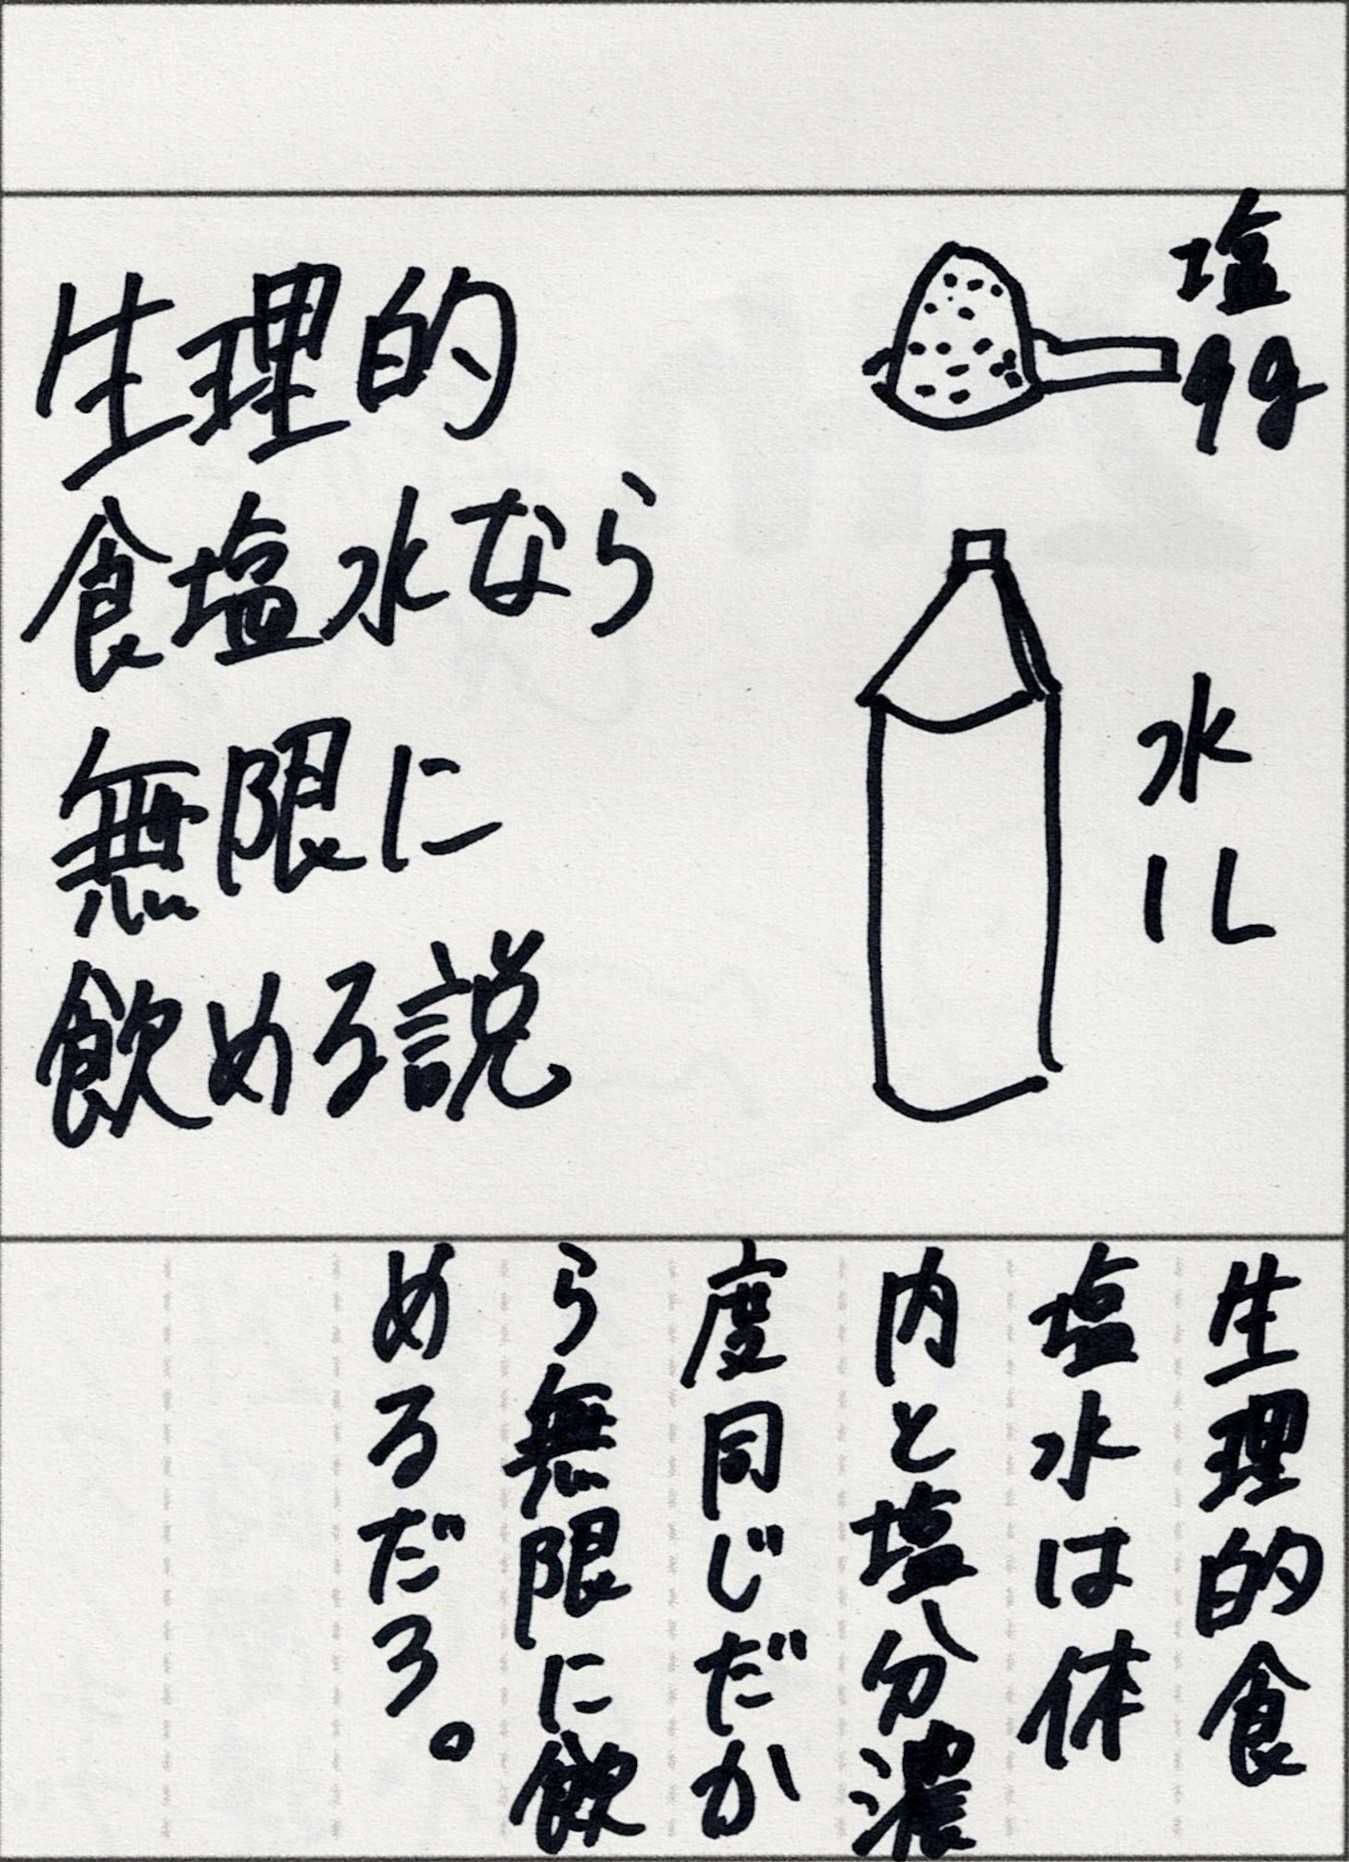 生理的
食塩水なら
無限に
飲める説
塩
9g
水
1L
生理的食
塩水は体
内と塩分濃
度同じだか
ら無限に飲
めるだろ。